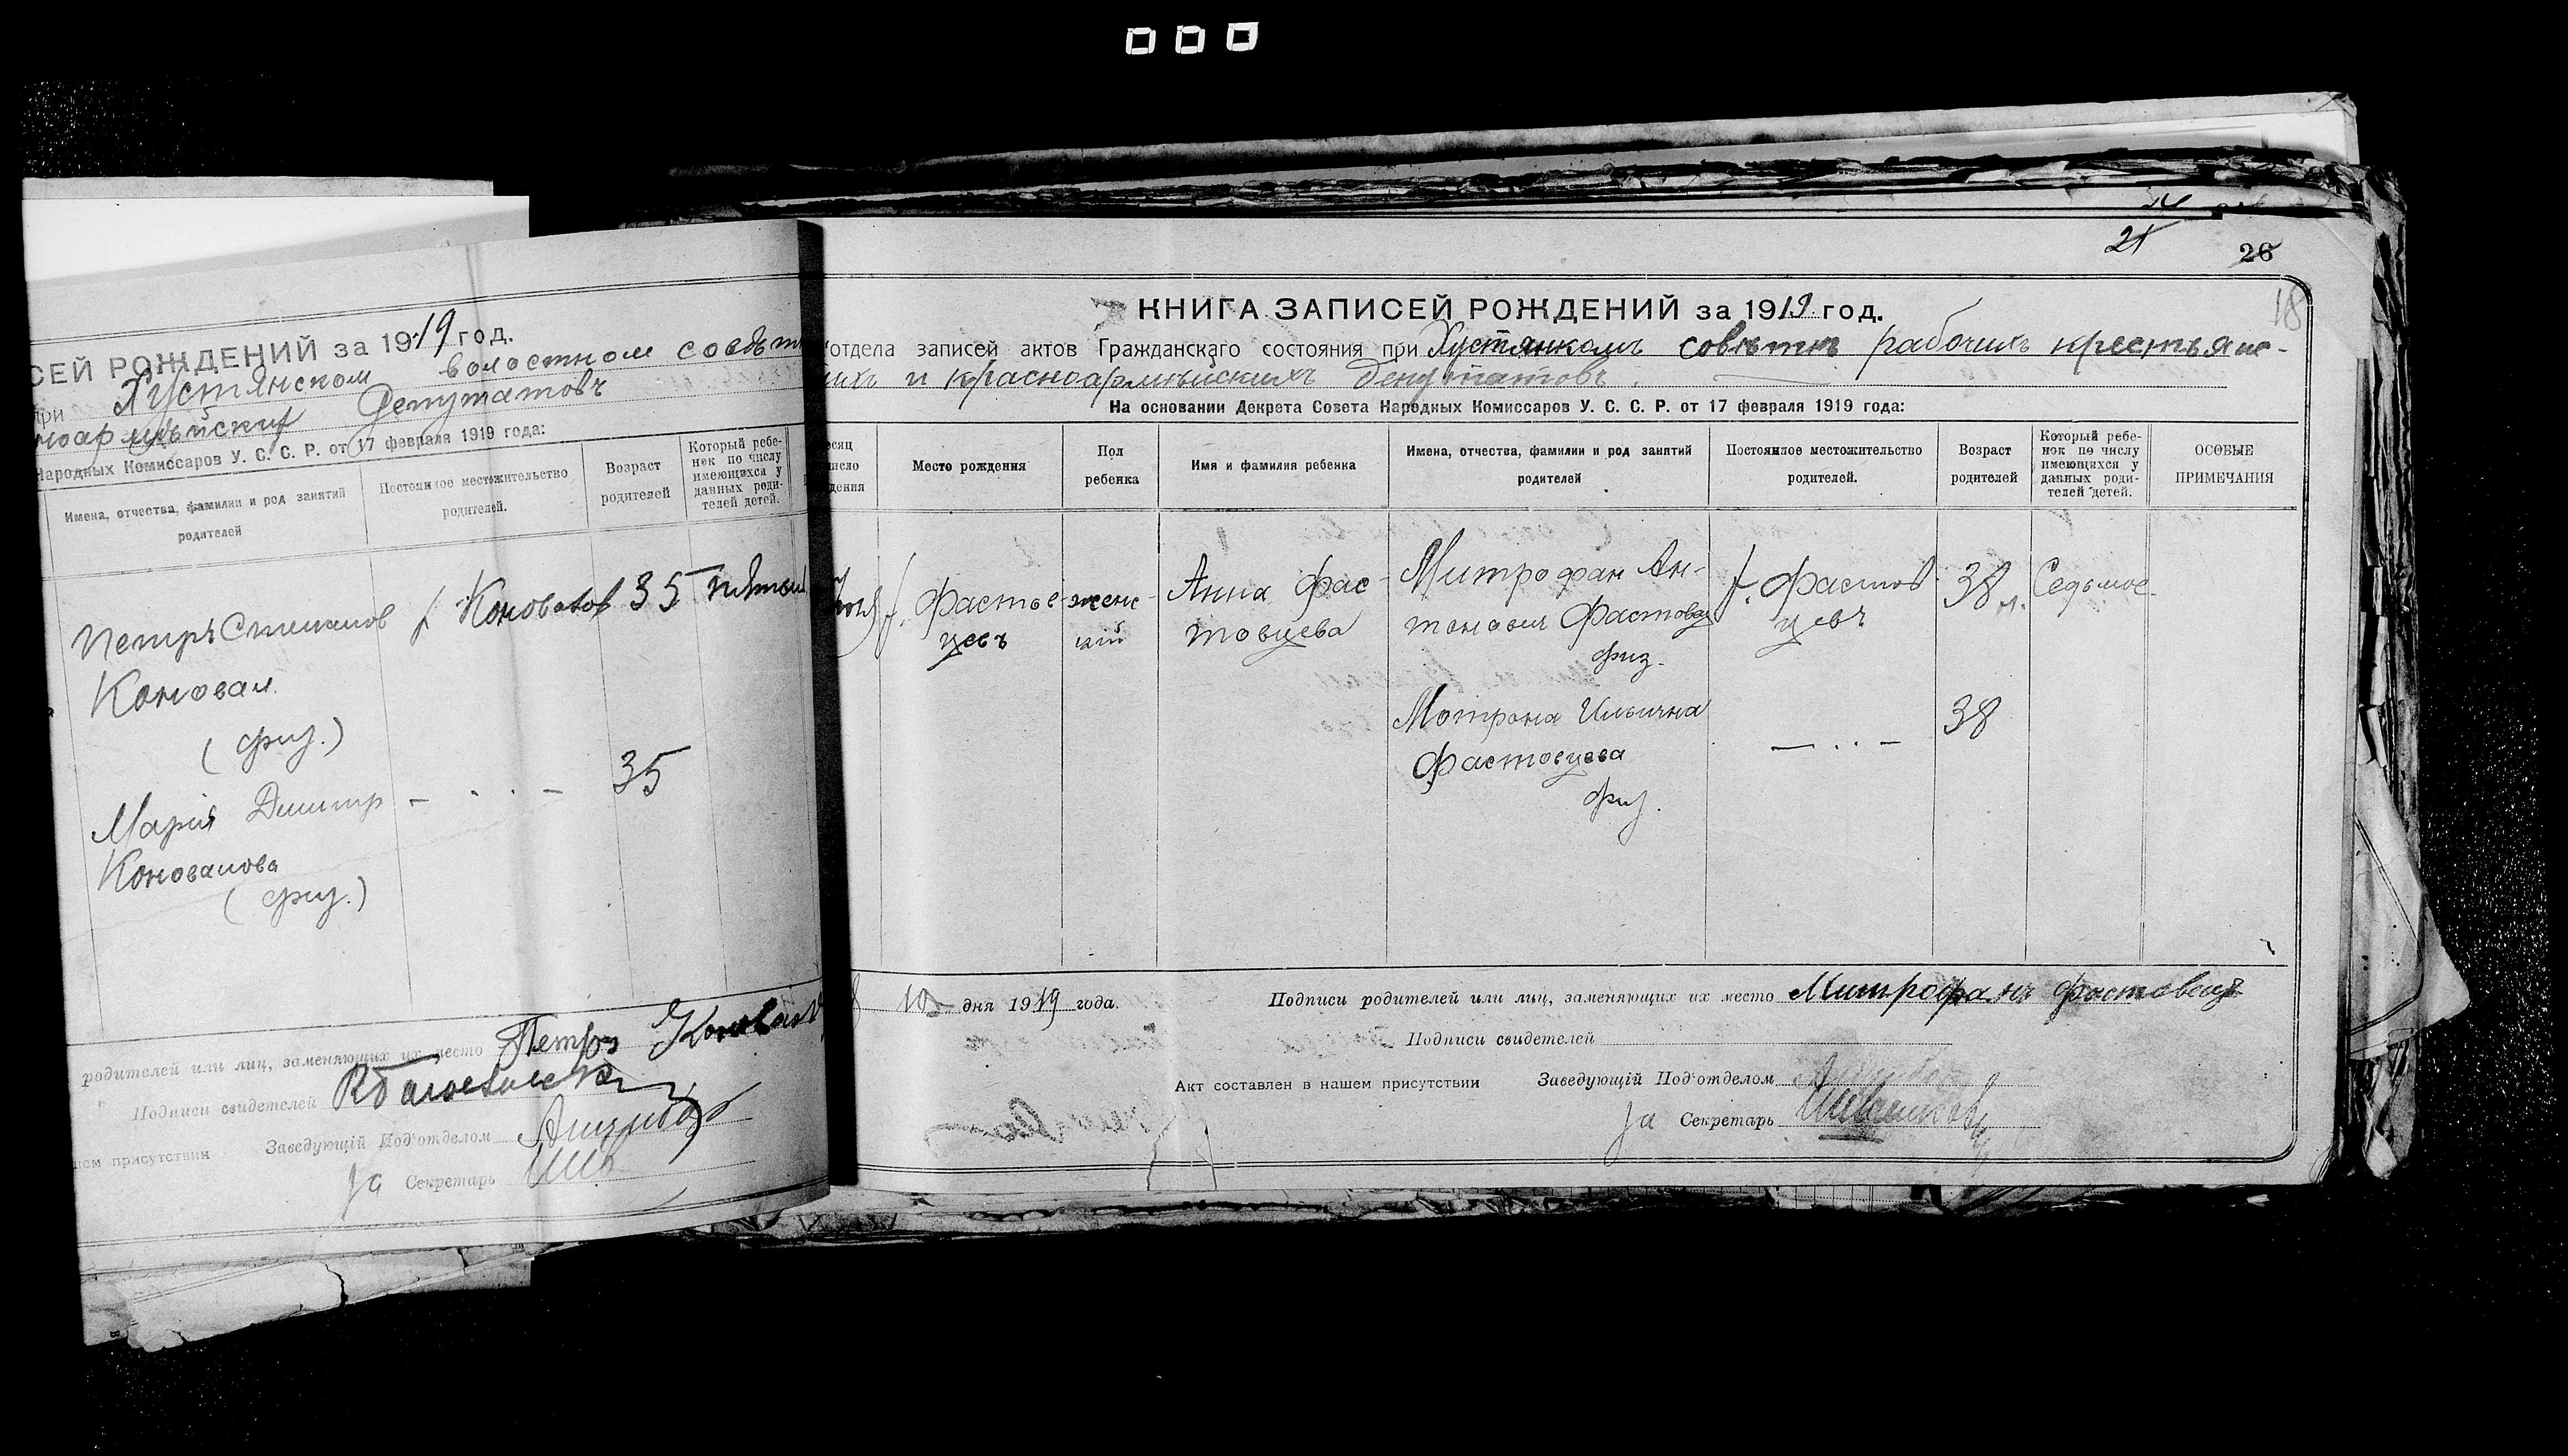 СЕЙ РОЖДЕНИЙ за 1919 год.
при Хустянском волостном совѣт
ноармѣйских Депутатовъ
Народных Комиссаров У. С. С. Р. от 17 февраля 1919 года:
Имена, отчества, фамилии и род занятий родителей
Постоянное местожительство родителей.
Возраст родителей
Который ребе-
нок по числу
имеющихся у
данных роди-
телей детей.
Петръ Степанов
Коновал.
(физ.)
35
Марія Дмитр
Коновалова
(физ.)
— . . —
35
родителей или лиц, заменяющих их место Петръ
Подписи свидетелей
Заведующій Под'отделом
нем присутствии
За Секретарь
21
26
18
КНИГА ЗАПИСЕЙ РОЖДЕНИЙ за 1919 год.
отдела записей актов Гражданскаго состояния при Хустянкомъ совѣтѣ рабочихъ крестьянс-
ихъ и красноармѣйскихъ депутатовъ.
На основании Декрета Совета Народных Комиссаров У. С. С. Р. от 17 февраля 1919 года:
есяц
число
дения
Место рождения
Пол ребенка
Имя и фамилия ребенка
Имена, отчества, фамилии и род занятий родителей
Постоянное местожительство родителей.
Возраст родителей
Который ребе-
нок по числу
имеющихся у
данных роди-
телей детей.
ОСОБЫЕ ПРИМЕЧАНИЯ
х. Фастов-
цевъ
женс-
кій
Анна Фас-
товцева
Митрофан Ан-
тонович Фастовец
физ.
х. Фастов-
цевъ
38 л.
Седьмое
Мотрона Ильична
Фастовцева
физ.
— . . —
38
10 дня 1919 года.
Подписи родителей или лиц, заменяющих их место Митрофанъ Фастовец
Подписи свидетелей
Акт составлен в нашем присутствии
Заведующій Под'отделом
За Секретарь